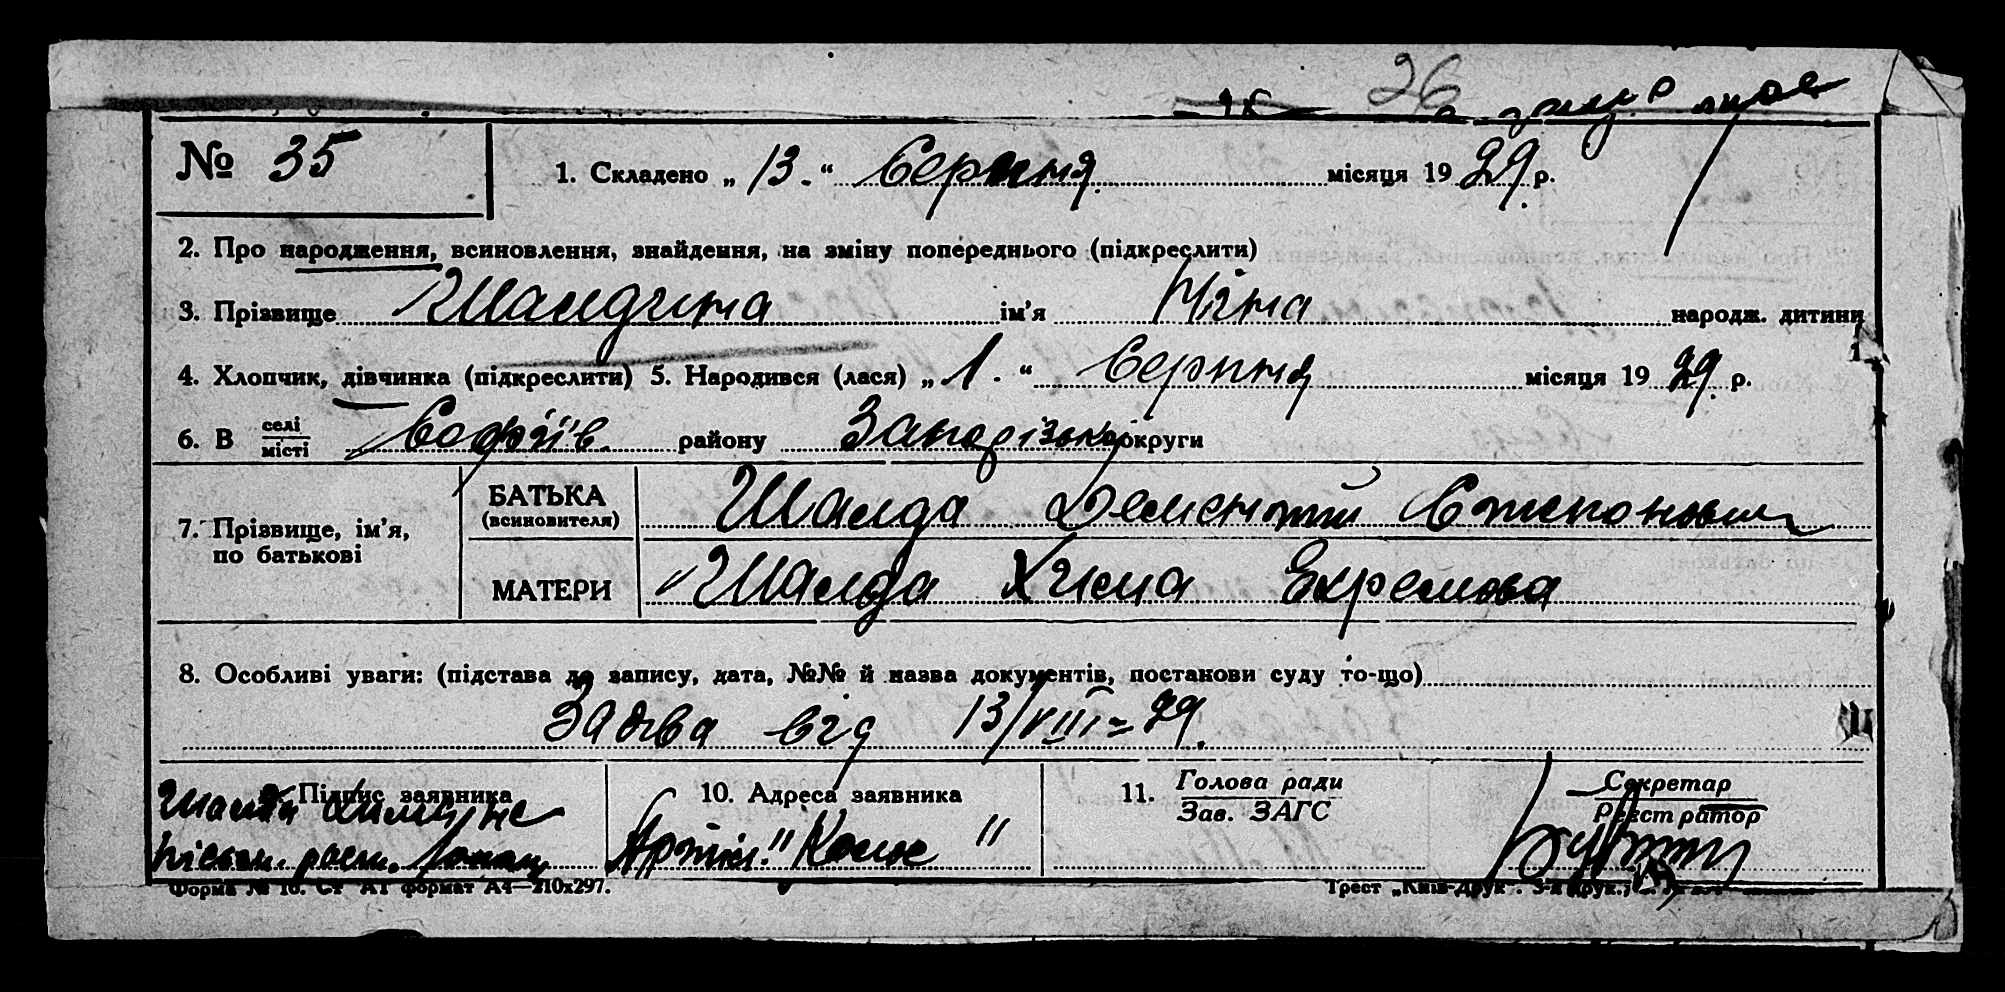 26
№ 35
1. Складено „ 13. “ Серпня місяця 1929 р.
2. Про народження, всиновлення, знайдення, на зміну попереднього (підкреслити)
3. Прізвище Шамдина ім’я Ніна народж. дитини
4. Хлопчик, дівчинка (підкреслити) 5. Народився (лася) „ 1. “ Серпня місяця 1929. р.
6. В селі місті Софіїв. району Запорізької округи
7. Прізвище, ім’я, по батькові
БАТЬКА (всиновителя) Шамда Дементій
МАТЕРИ Шамда Химa Ехремова
8. Особливі уваги: (підстава до запису, дата, №№ й назва документів, постанови суду то-що)
Заява від 13/VIII – 29.
Підпис заявника
10. Адреса заявника
11. Голова ради Зав. ЗАГС
Секретар Реєстратор
Форма № 10. Ст А1 формат А4—210х297.
Трест „Київ-Друк“. 3-я друк.